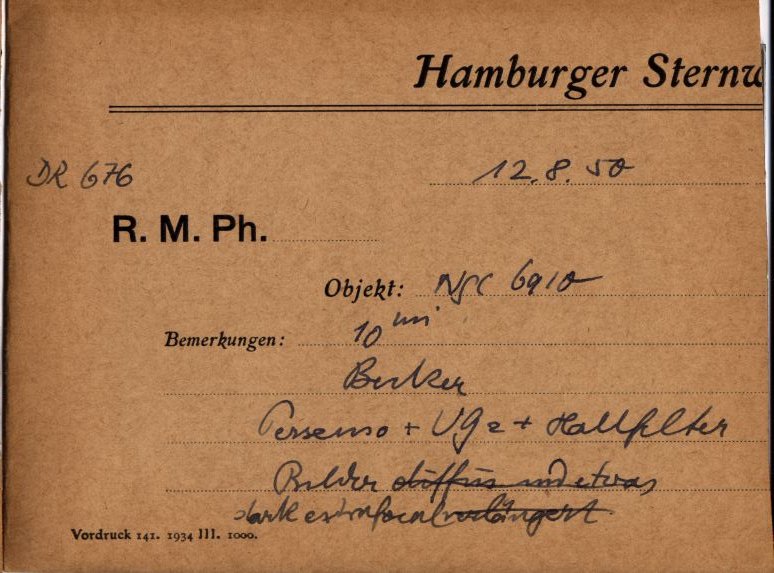 Hamburger Sternw
DR 676
12.8.50
R. M. Ph.
Objekt: NGC 6910
Bemerkungen: 10 min
Becker
Perseno + UG2 + Hallfilter
Bilder diffus und etwas
stark extrafocal verlängert
Vordruck 141. 1934 III. 1000.